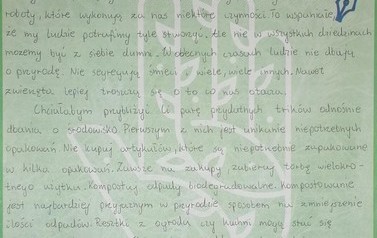 roboty, które wykonują za nas niektóre czynności. To wspaniałe,
że my ludzie potrafimy tyle stworzyć. Ale nie w wszystkich dziedzinach
możemy być z siebie dumni. W obecnych czasach ludzie nie dbają
o przyrodę. Nie segregują śmieci i wiele, wiele innych. Nawet
zwierzęta lepiej troszczą się o to co nas otacza.
Chciałabym przybliżyć Ci parę przydatnych trików odnośnie
dbania o środowisko. Pierwszym z nich jest unikanie niepotrzebnych
opakowań. Nie kupuj artykułów, które są niepotrzebnie zapakowane
w kilka opakowań. Zawsze na zakupy zabieraj torbę wielokro-
tnego użytku. Kompostuj odpady biodegradowalne. Kompostowanie
jest najbardziej przyjaznym w przyrodzie sposobem na zmniejszenie
ilości odpadów. Resztki z ogrodu czy kuchni mogą stać się